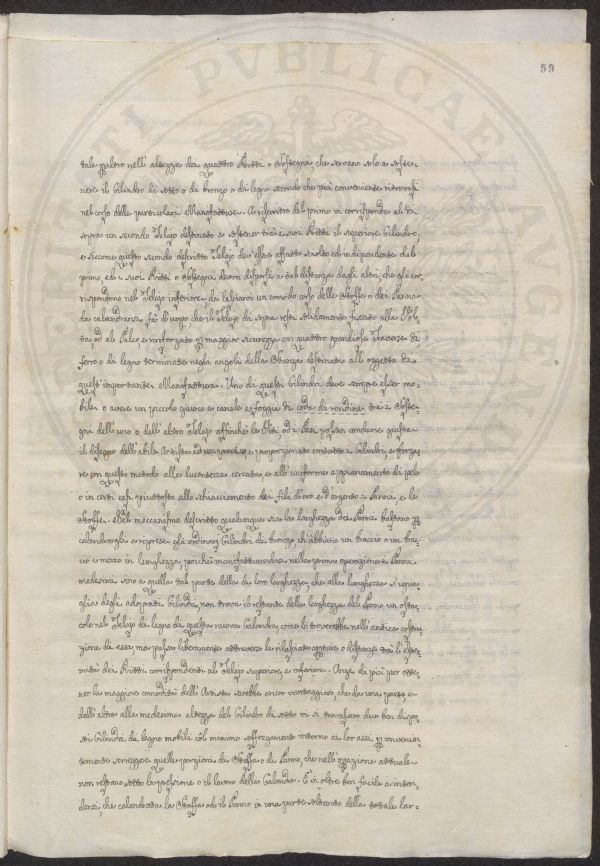 59
tale palmo nell' altezza dei quattro Ritti o Sostegni, che servano solo a soste-
nere il Cilindro di sotto o di bronzo o di legno secondo che più conveniente ritrovasi
nel corso delle particolari Manifatture. A riscontro del primo vi corrisponda al di
sopra un secondo Telajo destinato a sostener tra' suoi Ritti il superiore Cilindro,
e siccome questo secondo descritto Telajo dev' essere affatto sciolto ed independente dal
primo ed i suoi Ritti o Sostegni devon disporsi a tal distanza dagli altri che gli cor-
rispondono nel Telajo inferiore, da lasciarvi un comodo corso delle Stoffe o dei Panni
da calandrarsi, fa d'uopo, che il Telajo di sopra resti solidamente fissato alla Vol-
ta od al Palco, e rinforzato per maggior sicurezza con quattro grandiose Traverse di
ferro o di legno terminate negli angoli della Stanza destinata all' oggetto di
quest' importante Manifattura. Uno di questi Cilindri deve sempre esser mo-
bile o avere un piccolo giuoco e canale a foggia di coda di rondine tra i Soste-
gni dell' uno o dell' altro Telajo affinchè le Viti od i Pesi possan condurre giusta
il disegno dell' abile Artista ad un preciso e proporzionato contatto i Cilindri, e sforza-
re con questo metodo alla lucentezza cercata, e all' uniforme appianamento di pelo
o in certi casi piuttosto allo schiacciamento dei fili d'oro e d'argento i Panni, e le
Stoffe. Nel meccanismo descritto qualunque sia la larghezza dei Panni bastano per
calandrargli a riprese gli ordinarj Cilindri di bronzo ch' abbiano un braccio o un brac-
cio e mezzo in lunghezza, poichè manifatturandosi nella prima operazione i Panni
medesimi sino a quella tal parte della di loro larghezza, che alla lunghezza si ugua-
glia degli adoprati Cilindri, non trova il restante della larghezza del Panno un osta-
colo nel Telajo di legno di questa nuova Calandra, come lo troverebbe nell' antica costru-
zione di essa, ma passa liberamente attraverso la rilasciata apertura o distanza tra l' estre-
mità dei Ritti corrispondenti al Telajo superiore, e inferiore. Anzi di più per otte-
ner la maggiore comodità dell' Artista sarebbe ancor vantaggioso, che da una parte, e
dall' altra alla medesima altezza del Cilindro di sotto vi si trovassero due ben dispo-
sti Cilindri di legno mobili col minimo soffregamento intorno ai lor assi, per convenien-
temente sorreggere quelle porzioni di Stoffa o di Panno, che nell' operazione attuale
non restano sotto la pressione o il lavoro della Calandra. È in oltre ben facile a inten-
dersi, che calandrata la Stoffa od il Panno in una parte soltanto della totale lar-